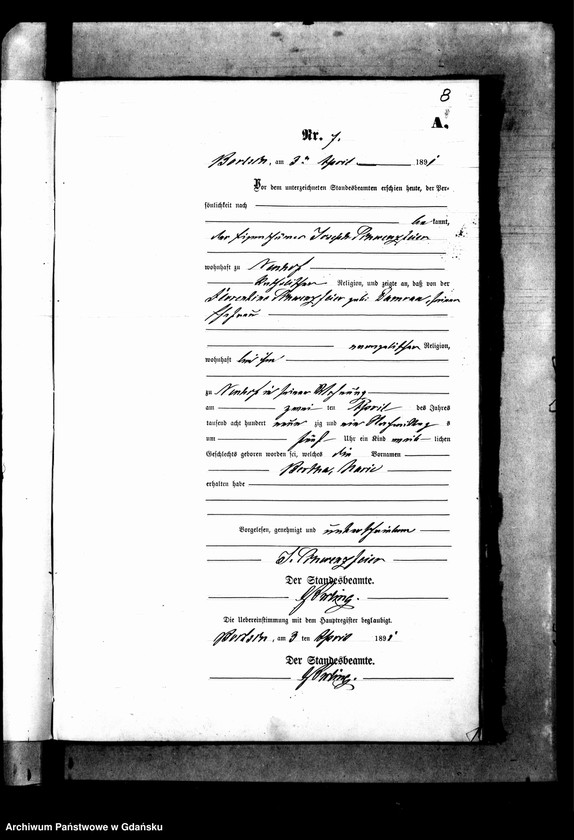 8
A.
Nr. 7.
am 3ten April 1891
Vor dem unterzeichneten Standesbeamten erschien heute, der Per-
sönlichkeit nach
be kannt,
der Eigenthümer Joseph
wohnhaft zu Neuhof
katholischer Religion, und zeigte an, daß von der
Florentine geb. seiner
Ehefrau
evangelischer Religion,
wohnhaft bei ihm
zu Neuhof in seiner Wohnung
am zwei ten April des Jahres
tausend acht hundert neun zig und ein Nachmittag s
um fünf Uhr ein Kind weib lichen
Geschlechts geboren worden sei, welches die Vornamen
Bertha, Marie
erhalten habe
Vorgelesen, genehmigt und unterschrieben
J.
Der Standesbeamte.
Die Uebereinstimmung mit dem Hauptregister beglaubigt.
am 3 ten April 1891
Der Standesbeamte.
Archiwum Państwowe w Gdańsku